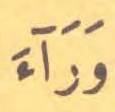 وَرَآءَ